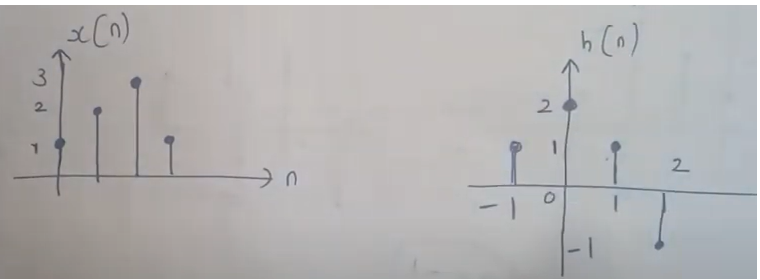 x(n)
3
2
1
n
h(n)
2
1
2
-1
0
1
-1